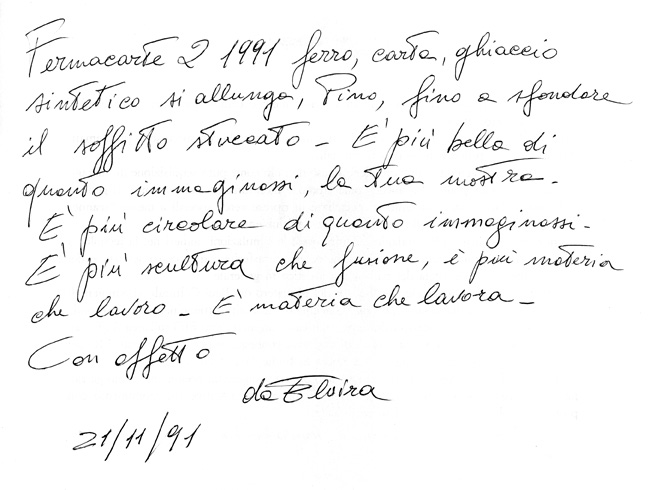 Fermacarte 2 1991 ferro, carta, ghiaccio
sintetico si allunga, Pino, fino a sfondare
il soffitto stuccato - E' più bella di
quanto immaginassi, la tua mostra -
E' più circolare di quanto immaginassi -
E' più scultura che fusione, è più materia
che lavoro - E' materia che lavora -
Con affetto
da Elvira
21/11/91